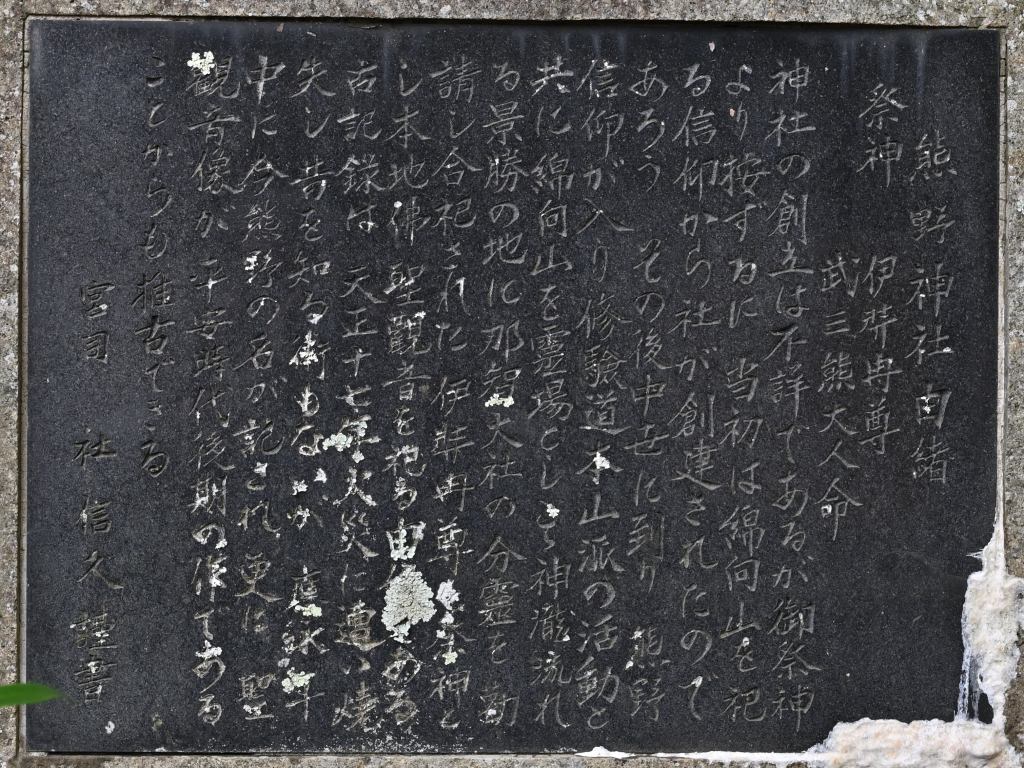 熊野神社由緒
祭神 伊弉冉尊
武三熊大人命
神社の創立は不詳であるが御祭神
より按ずるに 当初は綿向山を祀
る信仰から社が創建されたので
あろう その後中世に到り 熊野
信仰が入り修験道本山派の活動と
共に綿向山を霊場として神瀧流れ
る景勝の地に那智大社の分霊を勧
請し合祀された伊弉冉尊を祭神と
し本地佛 聖観音を祀る由緒がある
古記録は 天正十七年火災に遭い焼
失し昔を知る術もないが 應永年
中に今熊野の名が記され更に聖
観音像が平安時代後期の作である
ことからも推古できる
宮司 社信久謹書